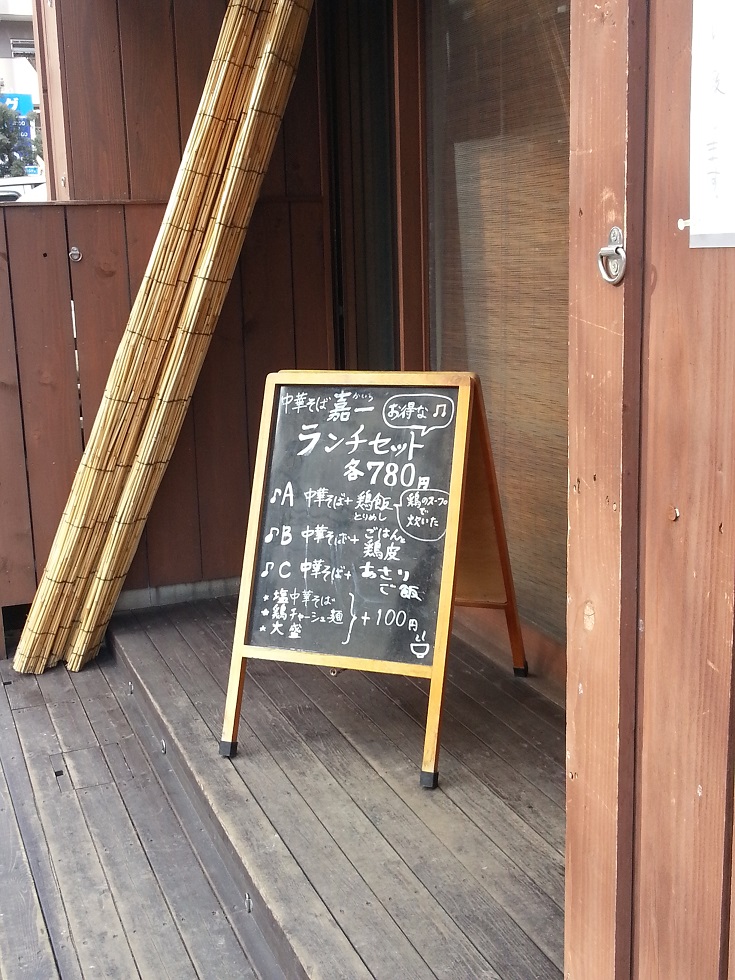 中華そば 嘉一 かいち
お得な♫
ランチセット
各780円
♪A 中華そば+鶏飯 とりめし
鶏のスープで炊いた
♪B 中華そば+ごはん&鶏皮
♪C 中華そば+あさりご飯
★塩中華そば
★鶏チャーシュー麺
★大盛
+100円